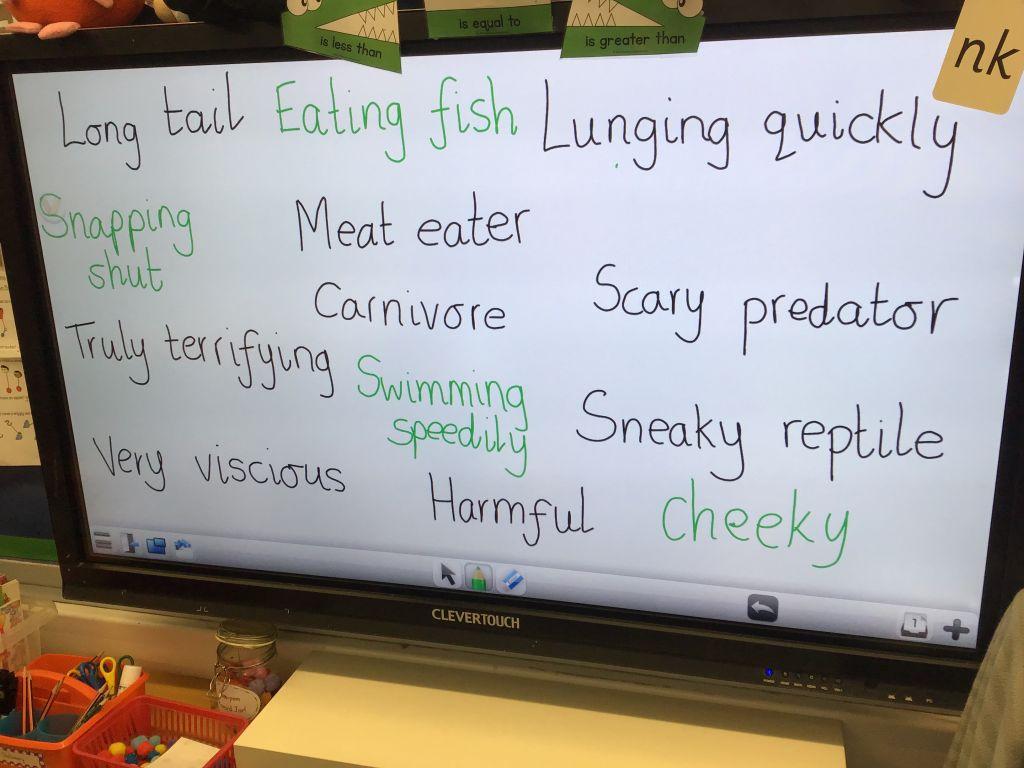 is less than
is equal to
is greater than
nk
Long tail
Eating fish
Lunging quickly
Snapping
shut
Meat eater
Carnivore
Scary predator
Truly terrifying
Swimming
speedily
Sneaky reptile
Very viscious
Harmful
Cheeky
1
CLEVERTOUCH